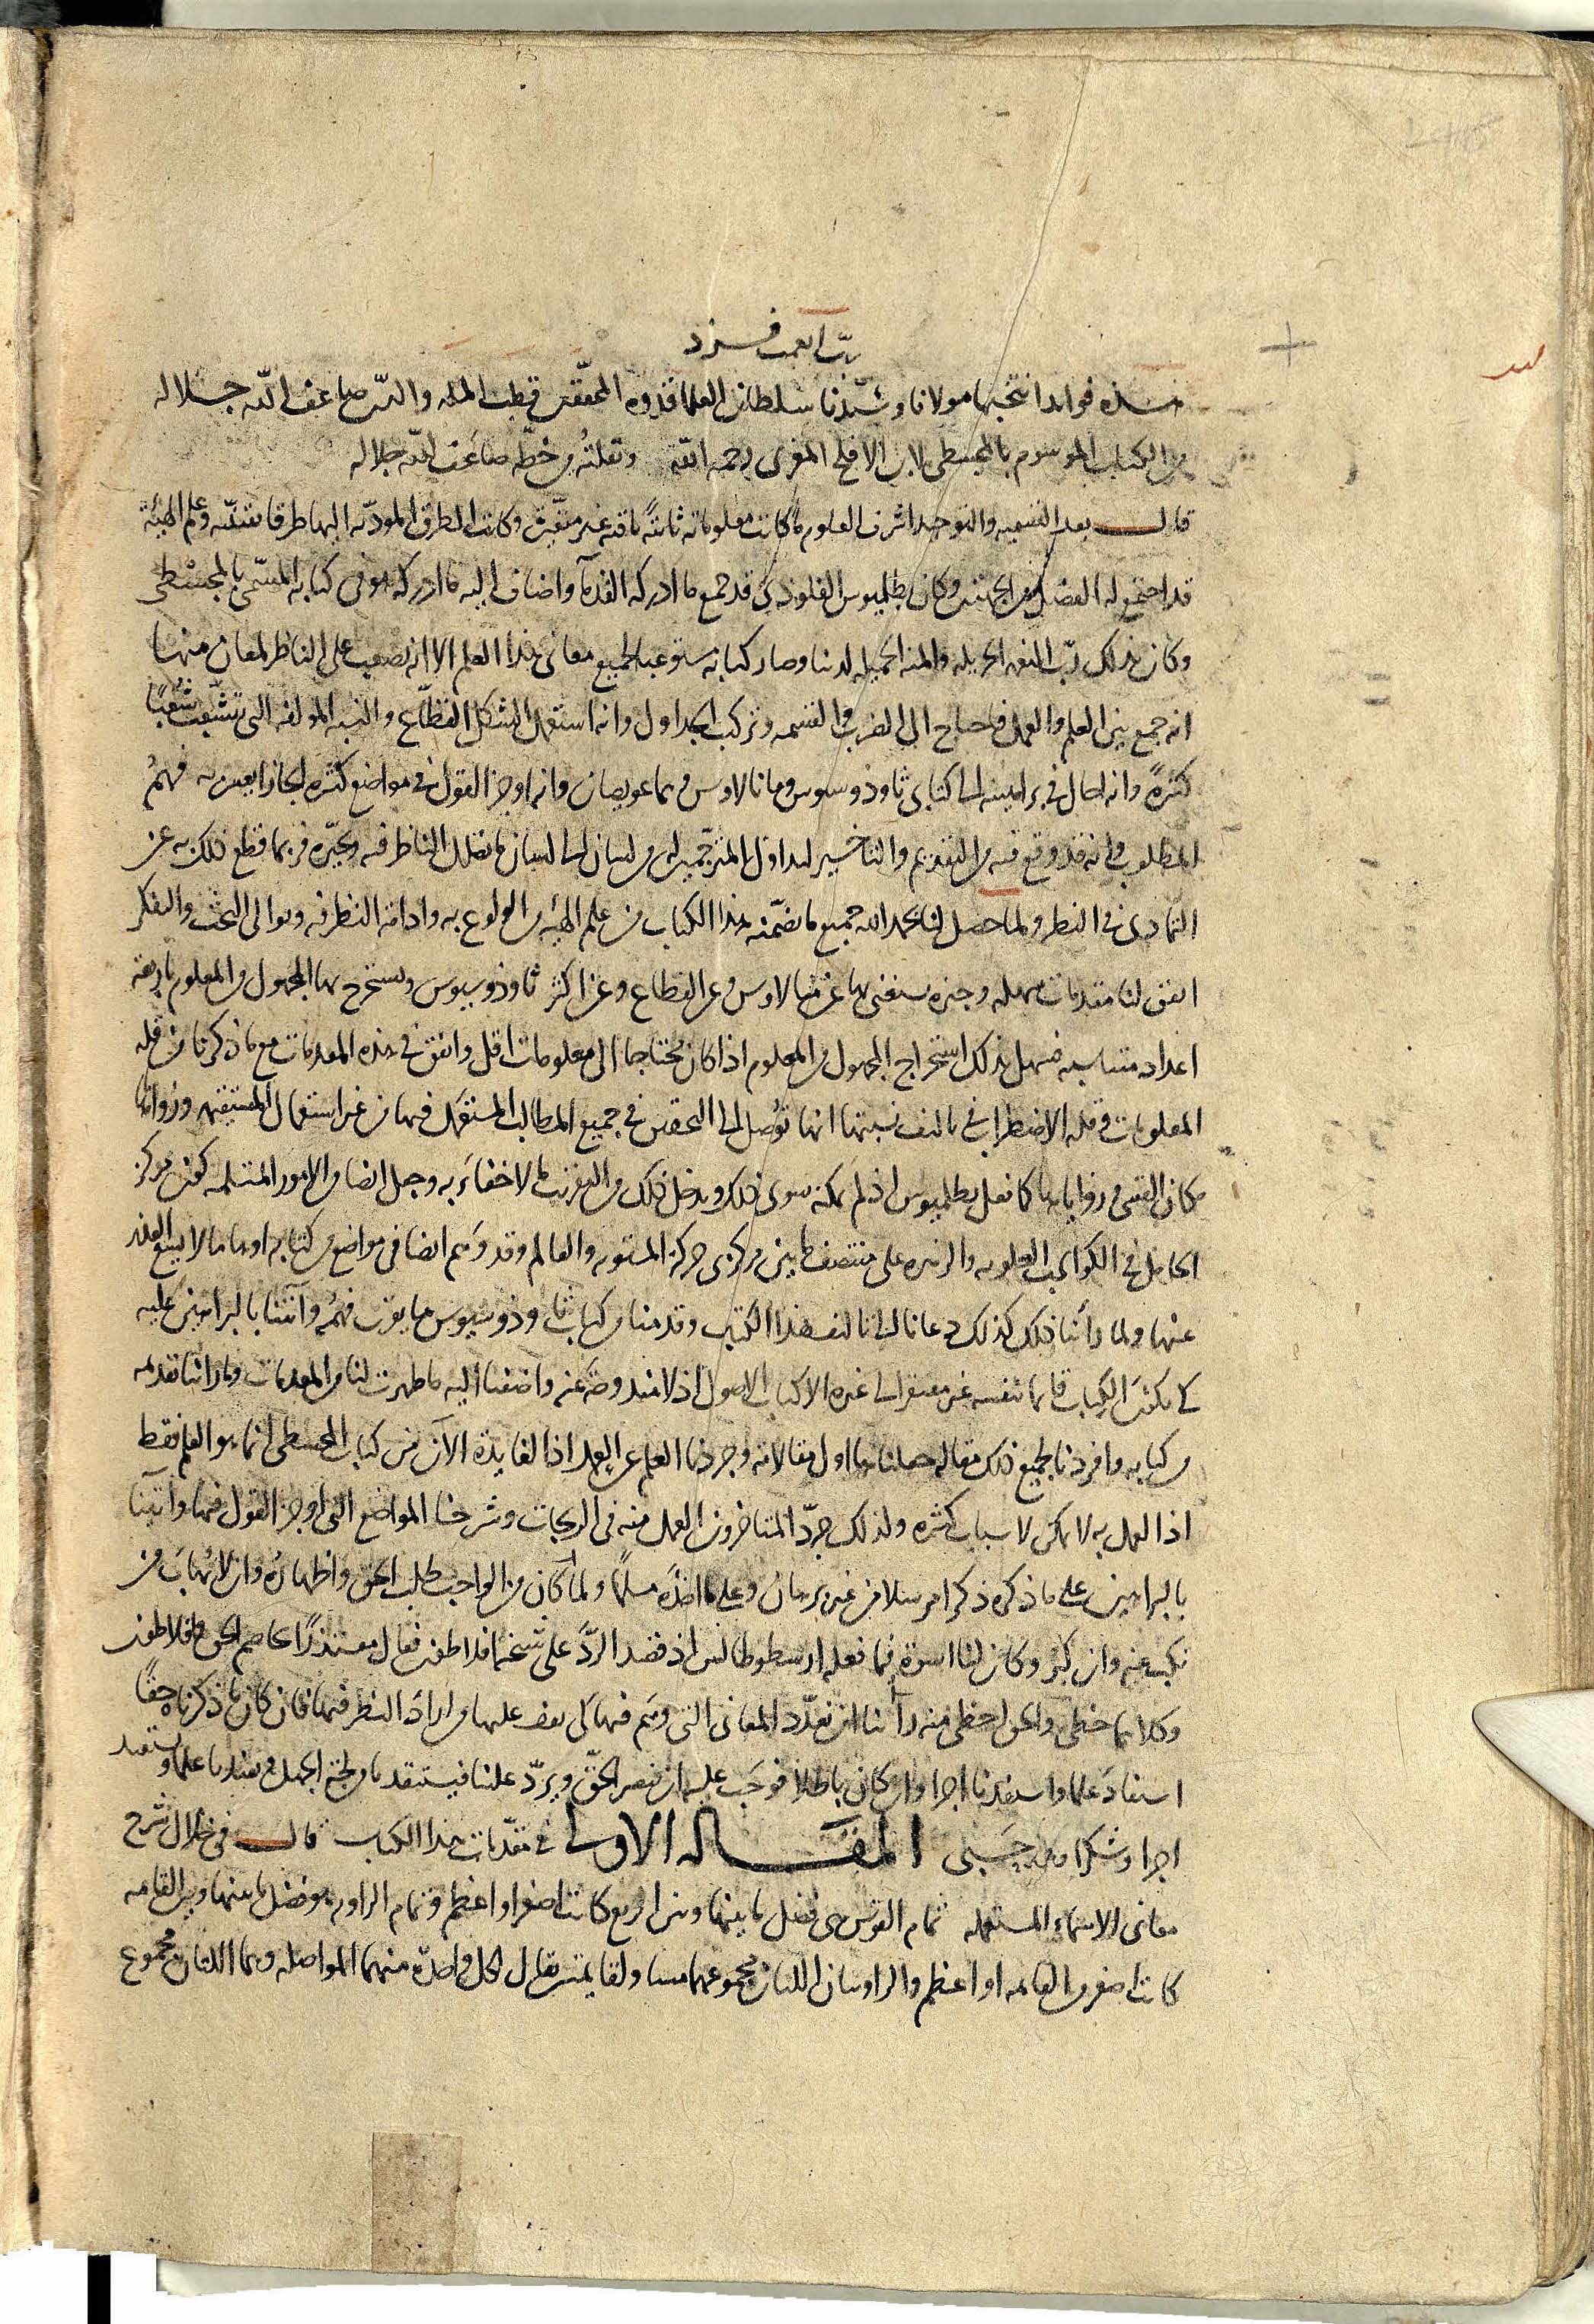 ربّ انعمت فزد
هذه فوايد انتخبها مولانا وسيّدنا سلطان العلما قدوه المحققين قطب المله والدين ضاعف الله جلاله
من الكتاب الموسوم بالمجسطى لابن الافلح المغربى رحمه الله ونقلتُه من خطّه ضاعف الله جلاله
قال بعد التسميه والتوحيد اشرف العلوم ما كانت معلوماته ثابتةً باقيه غير متغيّره وكانت الطرق المودّيه اليها طرقا يقينيّه وعلم الهيئة
قد اجتمع له الفضل من الجهتين وكان بطلميوس القلوذى قد جمع ما ادركه القدمآ واضاف اليه ما ادركه هو فى كتابه المسمّى بالمجسْطى
وكان بذلك ربّ النعمه الجزيله والمنه الجميله لدينا وصار كتابه مستوعبا لجميع معانى هذا العلم الا انه يصعب على الناظر لمعان منها
انه جمع بين العلم والعمل فاحتاج الى الضرب والقسمه وتركيب الجداول وانه استعمل الشكل القطّاع والنسبه المولفه التى تتشعّب شُعَبًا
كثيرةً وانه احال فى براهينه الى كتابى ثاوذوسيوس ومانالاوس وهما عويصان وانه اوجز القول فى مواضع كثيره ايجازا يعسر به فهمُ
المطلوب وانه قد وقع فيه من التقديم والتاخير لتداول المترجمين له من لسان الى لسان ما يضلل الناظر فيه ويحيّره فربما قطع ذلك به عن
التمادى فى النظر ولما حصل لنا بحمد الله جميع ما تضمّنه هذا الكتاب من علم الهيئه من الولوع به وادامة النظر فيه وتوالى البحث والتفكر
اتفق لنا مقدمات سهله وجيزه يستغنى بها عن مانالاوس وعن القطاع وعن اكثر ثاوذوسيوس ويستخرج بها المجهول من المعلوم باربعة
اعداد متناسبه فسهل بذلك استخراج المجهول من المعلوم اذا كان محتاجا الى معلومات اقل واتفق فى هذه المقدمات مع ما ذكرنا من قله
المعلومات وقله الاضطراب فى تاليف نسبتها انها تُوصل الى التحقيق فى جميع المطالب المستعمَل فيها من غير استعمال المستقيمه وزواياها
مكان القسى وزواياها كما فعل بطلميوس اذ لم يمكنه سوى ذلك ويدخل ذلك من التقريب ما لا خفاءَ به وجعل ايضا من الامور المتسلمه كون مركز
الحامل فى الكواكب العلويه والزهره على منتصف ما بين مركزى حركة المستويه والعالم وقد وَهِم ايضا فى مواضع من كتابه اوهاما لا يسع العذر
عنها ولما رأينا ذلك كذلك دعانا الى تاليف هذا الكتاب وقدمنا من كتاب ثاوذوسيوس ما يقرب فهمُه وآتينا بالبراهين عليه
كى يكون الكتاب قايما بنفسه غير مفتقر الى غيره الا كتاب الاصول اذ لا مندوحةَ عنه واضفنا اليه ما ظهرت لنا من المقدمات وما رأينا تقديمه
من كتابه وافردنا لجميع ذلك مقاله جعلناها اول مقالاته وجردنا العلم عن العمل اذ الفايدة الآن من كتاب المجسطى انما هو العلم فقط
اذ العمل به لا يمكن لاسباب كثيره ولذلك جرّد المتاخرون العمل منه فى الزيجات وشرحنا المواضع التى اوجز القول فيها واتينا
بالبراهين على ما ذكره ذكرا مرسلا من غير برهان وعلى ما اخذَه مسلمًا ولما كان من الواجب طلب الحق واظهارُه وان لا يُهابَ من
نكب عنه وان كبُر وكان لنا اسوة فيما فعله ارسطوطاليس اذ قصد الردَّ على شيخه افلاطون فقال معتذرًا تخاصم الحق وافلاطون
وكلاهما حظى والحق احظى منه رأينا ان نعدّد المعانى التى وَهم فيها كى يقف عليها من ارادَ النظر فيها فان كان ما ذكرناه حقًّا
استفادَ علما واستفدنا اجرا وان كان باطلا فوجَب عليه ان ينصر الحقّ ويردّ علينا فيستنقذنا من لجج الجهل ويفيدنا علما ويستفيد
اجرا وشكرا والله حسبى المقاله الاولى فى مقدّمات هذا الكتاب قال فى خلال شرح
معانى الاسماء المستعمله تمام القوس هى فضل ما بينها وبين الربع كانت اصغر او اعظم وتمام الزاويه هو فضل ما بينها وبين القايمه
كانت اصغر من القايمه او اعظم والزاويتان اللتان مجموعهما مساو لقايمتين يقال لكل واحدة منهما المواصله وهما اللتان مجموع